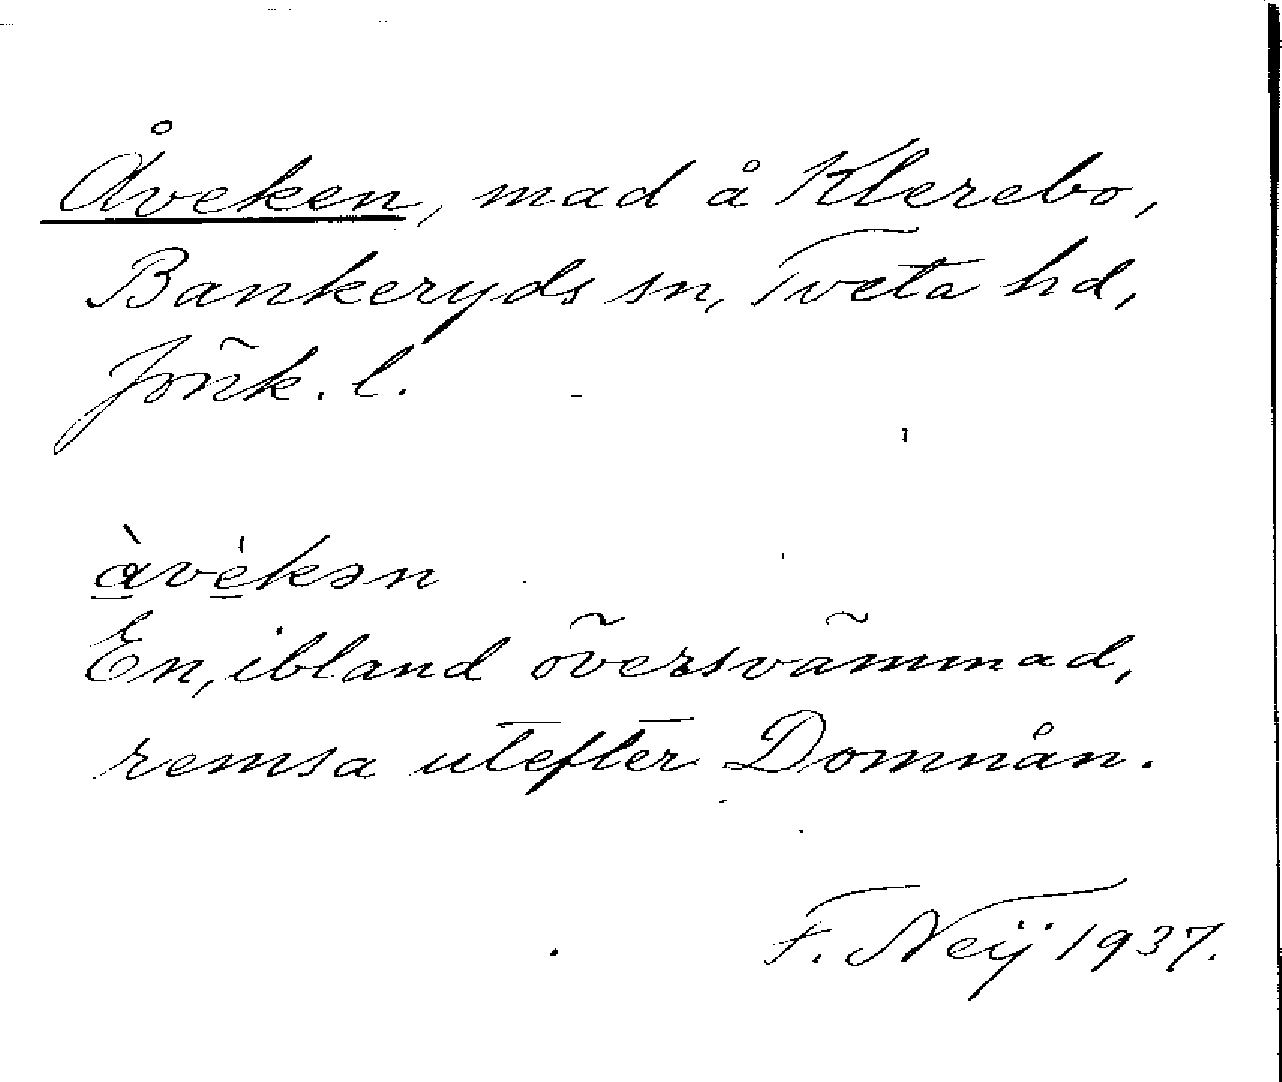 Åveken, mad å Klerebo,
Bankeryds sn, Tveta hd,
Jönk. l.
àvèkən
En, ibland översvämmad,
remsa utefter Domnån.
F. Neij 1937.